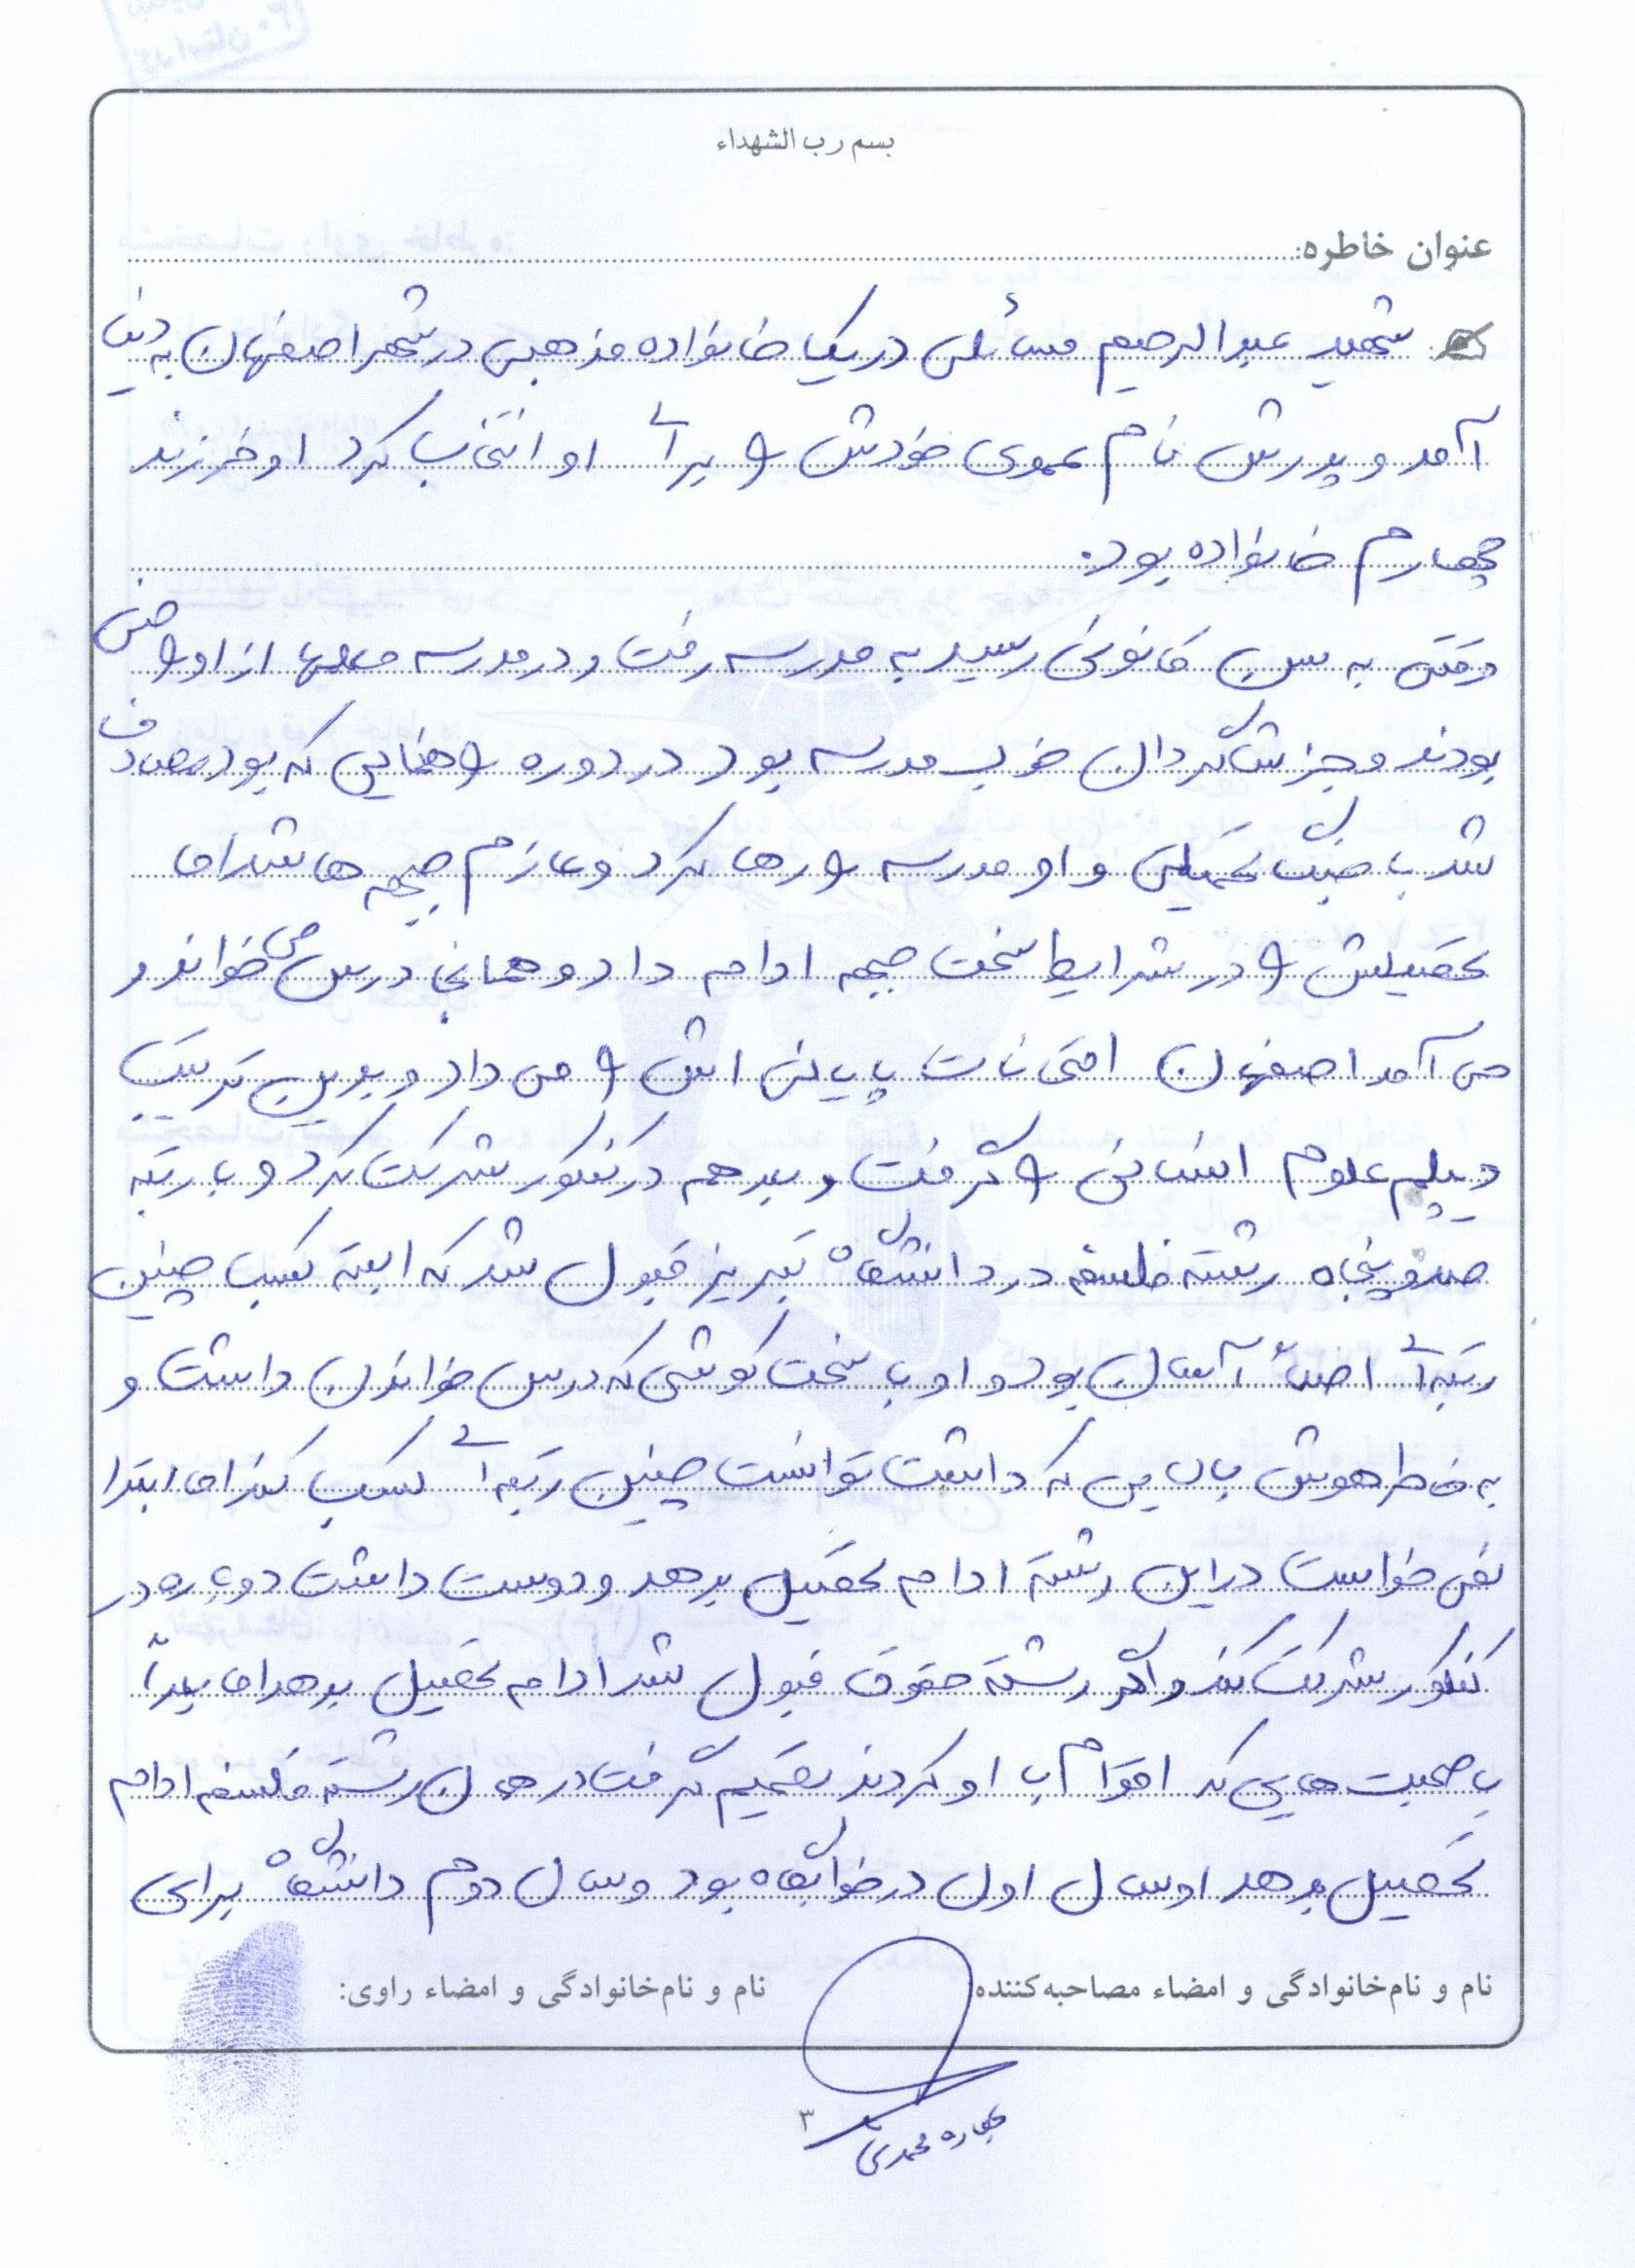 بسم رب الشهداء
عنوان خاطره:
شهید عبدالرحیم مسائلی در یک خانواده مذهبی در شهر اصفهان به دنیا
آمد و پدرش نام عموی خودش را برای او انتخاب کرد او فرزند
چهارم خانواده بود.
وقتی به سن قانونی رسید به مدرسه رفت و در مدرسه معلمها از او راضی
بودند و جز شاگردان خوب مدرسه بود در دوره راهنمایی که بود مصادف
شد با جنگ تحمیلی و او مدرسه را رها کرد و عازم جبهه ها شد اما
تحصیلش را در شرایط سخت جبهه ادامه داد و همانجا درس می خواند و
می آمد اصفهان امتحانات پایانی اش را می داد و بدین ترتیب
دیپلم علوم انسانی را گرفت و بعد هم در کنکور شرکت کرد و با رتبه
صد و پنجاه رشته فلسفه در دانشگاه تبریز قبول شد که البته کسب چنین
رتبه ای اصلاً آسان نبود و او با سخت کوشی که در درس خواندن داشت و
به خاطر هوش بالایی که داشت توانست چنین رتبه ای کسب کند اما ابتدا
نمی خواست در این رشته ادامه تحصیل بدهد و دوست داشت دوباره در
کنکور شرکت کند و اگر رشته حقوق قبول شد ادامه تحصیل بدهد اما بعداً
با صحبت هایی که اقوام با او کردند تصمیم گرفت در همان رشته فلسفه ادامه
تحصیل بدهد او سال اول در خوابگاه بود و سال دوم دانشگاه برای
نام و نام‌خانوادگی و امضاء مصاحبه‌کننده
نام و نام‌خانوادگی و امضاء راوی:
۳
محمدی